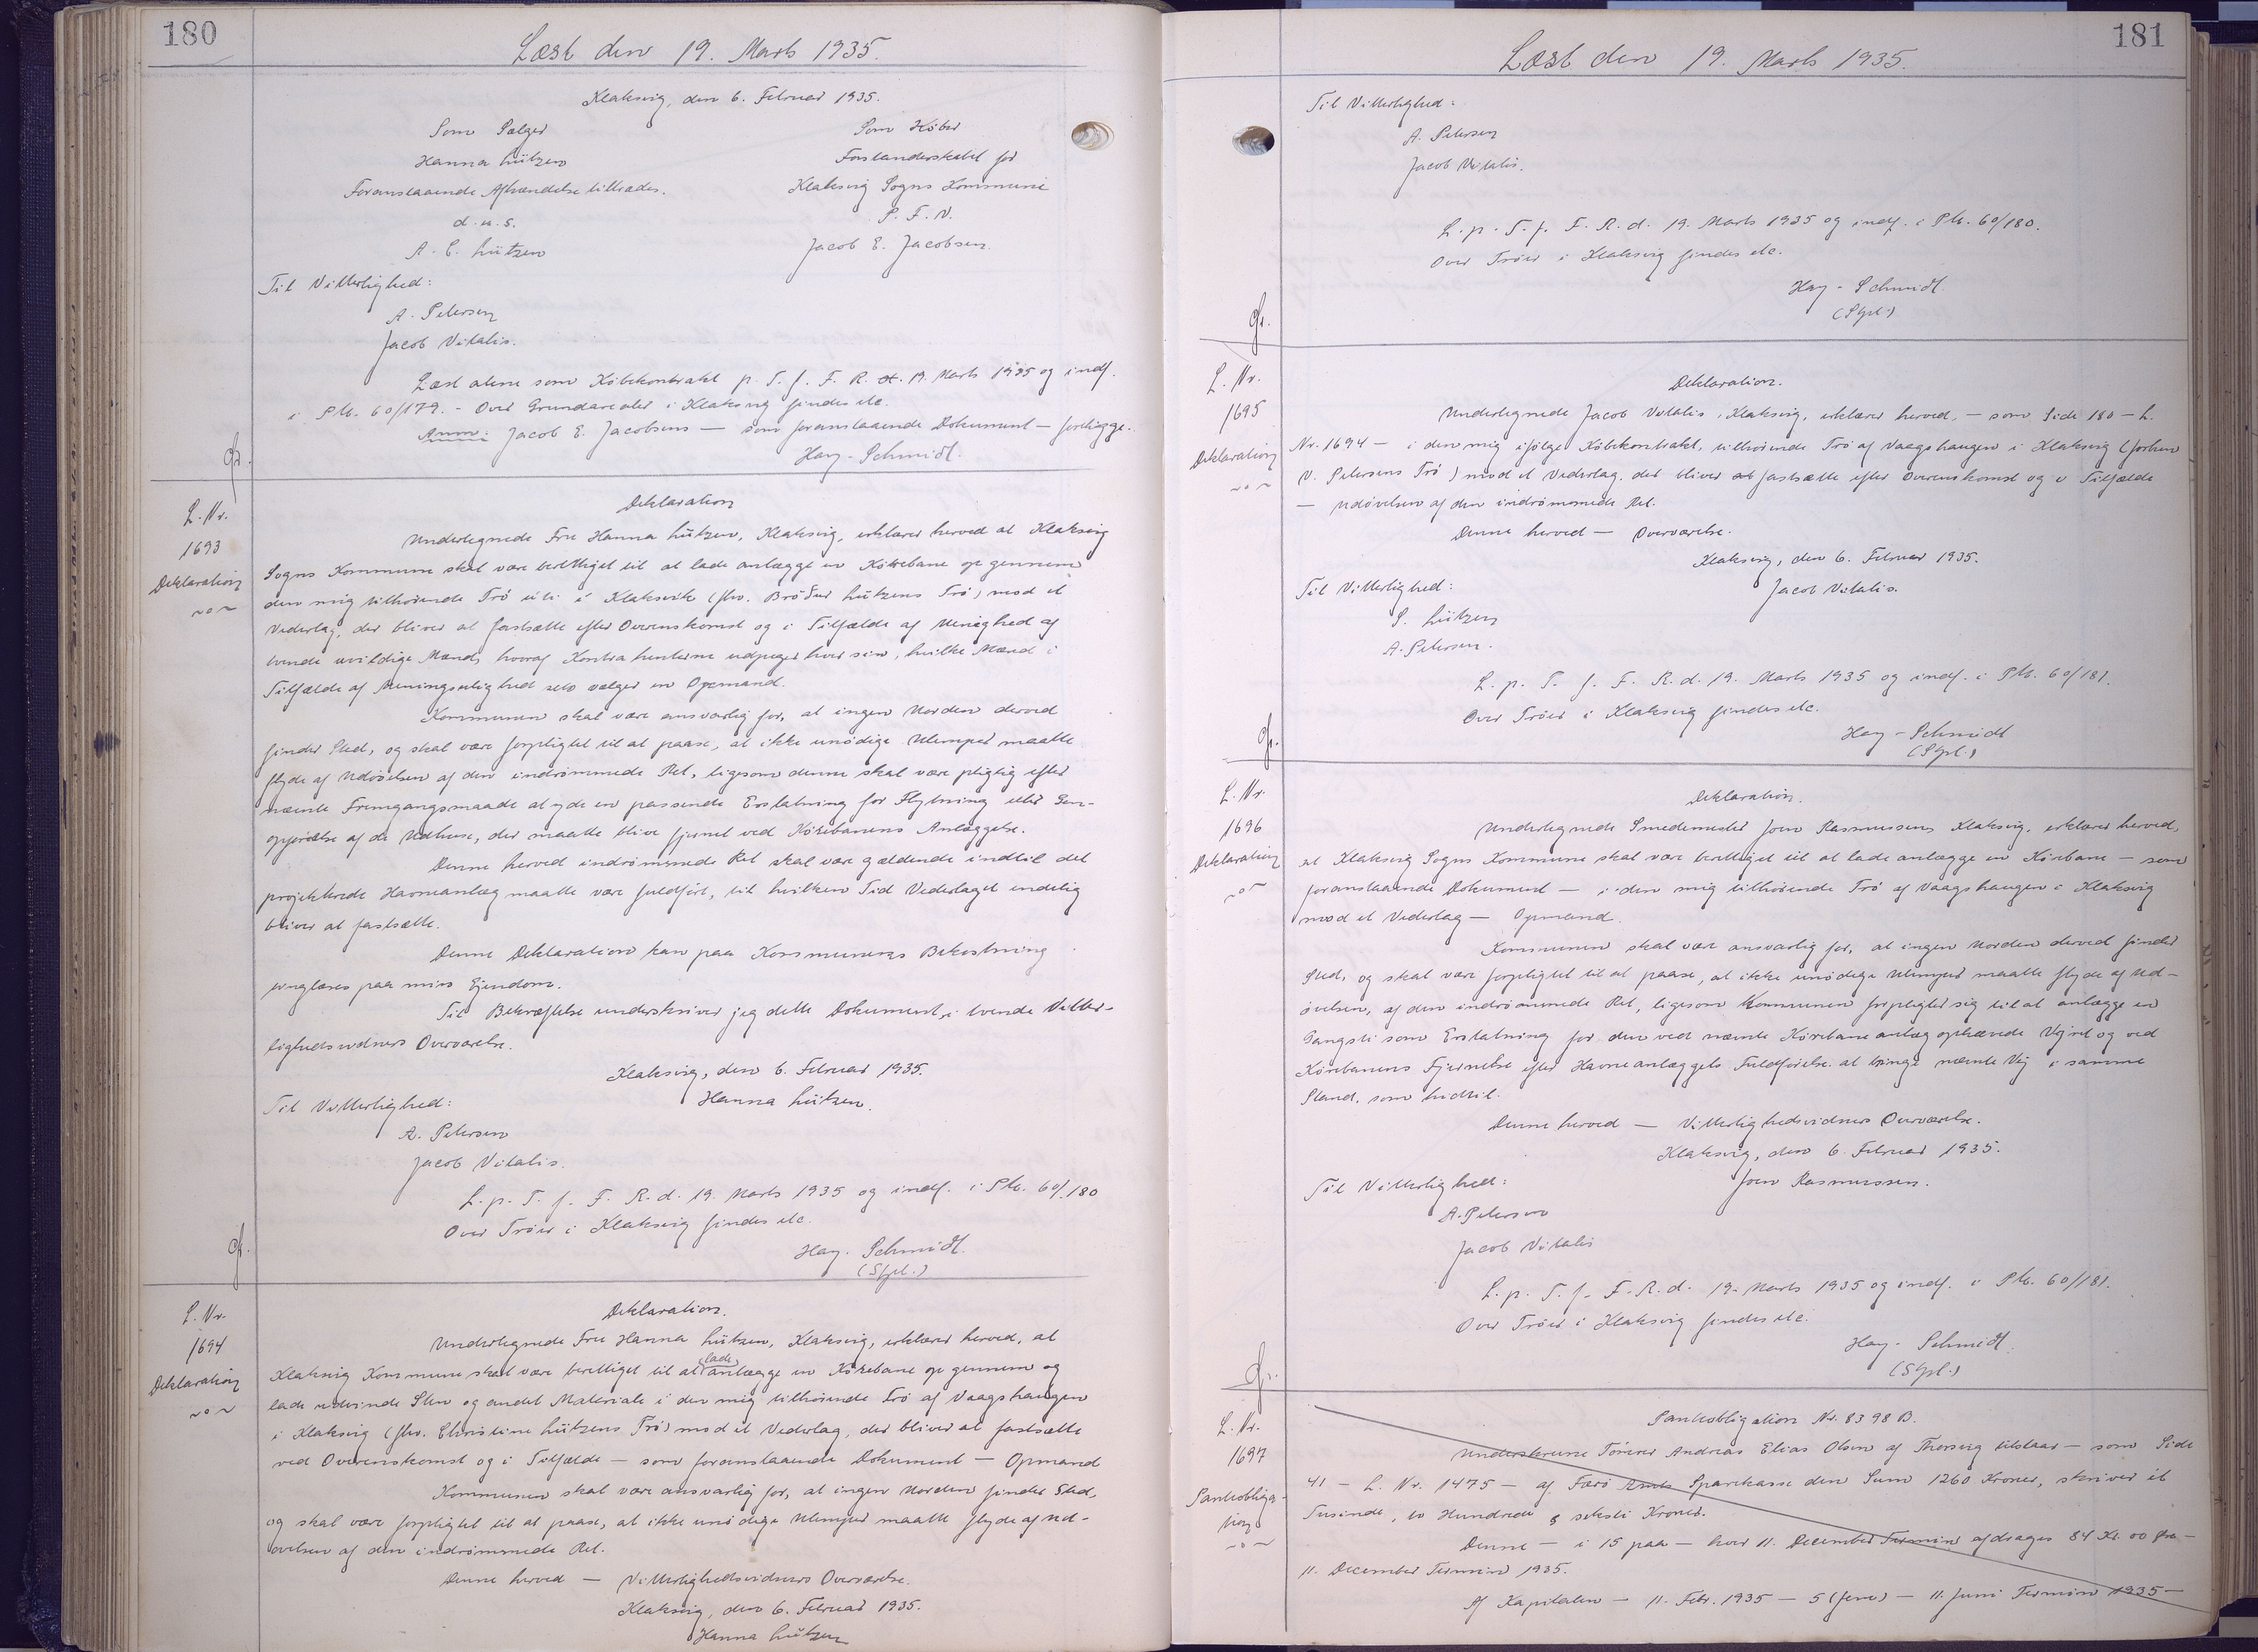 180
Læst den 19. Marts 1935.
Klaksvig, den 6. Februar 1935.
Som Sælger
Hanna Lützen
Foranstaaende Afhændelse tiltrædes.
d. u. s.
A. C. Lützen
Som Køber
Forstanderskabet for
Klaksvig Sogns Kommune
P. F. V.
Jacob E. Jacobsen.
Til Vitterlighed:
A. Petersen
Jacob Vitalis.
Læst alene som Købekontrakt p. T. f. F. R. d. 19. Marts 1935 og indf.
i Ptk. 60/179. - Over Grundarealer i Klaksvig findes etc.
Anm: Jacob E. Jacobsens — som foranstaaende Dokument — foreligge.
Hay-Schmidt.
L. Nr.
1693
Deklaration
Deklaration
Undertegnede Fru Hanna Lützen, Klaksvig, erklærer herved at Klaksvig
Sogns Kommune skal være berettiget til at lade anlægge en Körebane op gennem
den mig tilhörende Trö úti í Klaksvík (fhv. Bröður Lützens Trö) mod et
Vederlag, der bliver at fastsætte efter Overenskomst og i Tilfælde af Uenighed af
tvende uvildige Mænd, hvoraf Kontrahenterne udpeger hver sin, hvilke Mænd i
Tilfælde af Meningsulighed selv vælger en Opmand.
Kommunen skal være ansvarlig for, at ingen Uorden derved
finder Sted, og skal være forpligtet til at paase, at ikke unödige Ulemper maatte
flyde af Udövelsen af den indrömmede Ret, ligesom denne skal være pligtig efter
nævnte Fremgangsmaade at yde en passende Erstatning for Flytning eller Gen-
opförelse af de Udhuse, der maatte blive fjernet ved Körebanens Anlæggelse.
Denne herved indrömmede Ret skal være gældende indtil det
projekterede Havneanlæg maatte være fuldfört, til hvilken Tid Vederlaget endelig
bliver at fastsætte.
Denne Deklaration kan paa Kommunens Bekostning
tinglæses paa min Ejendom.
Til Bekræftelse underskriver jeg dette Dokument i tvende Vitter-
lighedsvidners Overværelse.
Klaksvig, den 6. Februar 1935.
Hanna Lützen.
Til Vitterlighed:
A. Petersen
Jacob Vitalis.
L. p. T. f. F. R. d. 19. Marts 1935 og indf. i Ptk. 60/180
Over Tröer i Klaksvig findes etc.
Hay-Schmidt.
(Sgd.)
L. Nr.
1694
Deklaration
Deklaration.
Undertegnede Fru Hanna Lützen, Klaksvig, erklærer herved, at
Klaksvig Kommune skal være berettiget til at lade anlægge en Körebane op gennem og
lade udvinde Sten og andet Materiale i den mig tilhörende Trö af Vaagshaugen
i Klaksvig (fhv. Christine Lützens Trö) mod et Vederlag, der bliver at fastsætte
ved Overenskomst og i Tilfælde — som foranstaaende Dokument — Opmand
Kommunen skal være ansvarlig for, at ingen Uorden finder Sted,
og skal være forpligtet til at paase, at ikke unödige Ulemper maatte flyde af Ud-
övelsen af den indrömmede Ret.
Denne herved — Vitterlighedsvidners Overværelse.
Klaksvig, den 6. Februar 1935.
Hanna Lützen
181
Læst den 19. Marts 1935.
Til Vitterlighed:
A. Petersen
Jacob Vitalis.
L. p. T. f. F. R. d. 19. Marts 1935 og indf. i Ptk. 60/180.
Over Tröer i Klaksvig findes etc.
Hay-Schmidt.
(Sgd.)
L. Nr.
1695
Deklaration
Deklaration.
Undertegnede Jacob Vitalis, Klaksvig, erklærer herved, — som Side 180 — L.
Nr. 1694 — i den mig ifølge Købekontrakt, tilhörende Trö af Vaagshaugen i Klaksvig (forhen
V. Petersens Trö) mod et Vederlag, der bliver at fastsætte efter Overenskomst og i Tilfælde
— Udövelsen af den indrömmede Ret.
Denne herved — Overværelse.
Klaksvig, den 6. Februar 1935.
Jacob Vitalis.
Til Vitterlighed:
S. Lützen
A. Petersen.
L. p. T. f. F. R. d. 19. Marts 1935 og indf. i Ptk. 60/181.
Over Tröer i Klaksvig findes etc.
Hay-Schmidt
(Sgd.)
L. Nr.
1696
Deklaration
Deklaration.
Undertegnede Smedemester Joen Rasmussen, Klaksvig, erklærer herved,
at Klaksvig Sogns Kommune skal være berettiget til at lade anlægge en Körebane — som
foranstaaende Dokument — i den mig tilhörende Trö af Vaagshaugen i Klaksvig
mod et Vederlag — Opmand.
Kommunen skal være ansvarlig for, at ingen Uorden derved finder
Sted, og skal være forpligtet til at paase, at ikke unödige Ulemper maatte flyde af Ud-
övelsen, af den indrömmede Ret, ligesom Kommunen forpligter sig til at anlægge en
Gangsti som Erstatning for den ved nævnte Körebaneanlæg ophævede Vejret og ved
Körebanens Fjernelse efter Havneanlæggets Fuldförelse at bringe nævnte Vej i samme
Stand, som hidtil.
Denne herved — Vitterlighedsvidners Overværelse.
Klaksvig, den 6. Februar 1935.
Joen Rasmussen.
Til Vitterlighed:
A. Petersen
Jacob Vitalis
L. p. T. f. F. R. d. 19. Marts 1935 og indf. i Ptk. 60/181.
Over Tröer i Klaksvig findes etc.
Hay-Schmidt.
(Sgd.)
L. Nr.
1697
Panteobliga-
tion
Panteobligation Nr. 8398 B.
Underskrevne Tömrer Andreas Elias Olsen af Thorsvig tilstaar — som Side
41 — L. Nr. 1475 — af Færö Amts Sparekasse den Sum 1260 Kroner, skriver et
Tusinde, to Hundrede & seksti Kroner.
Denne — i 15 paa — hver 11. December Termin afdrages 84 Kr. 00 Øre —
11. December Termin 1935.
Af Kapitalen — 11. Febr. 1935 — 5 (fem) — 11. Juni Termin 1935 —